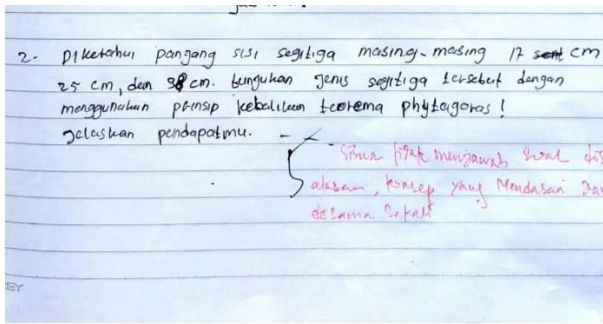 2. Diketahui panjang sisi segitiga masing-masing 17 cm
25 cm, dan 38 cm. tungukan jenis segitiga tersebut dengan
menggunakan prinsip kebalikan teorema phytagoras!
Jelaskan pendapatmu.
tidak menjawab soal
alasan, konsep yang mendasari
sama sekali